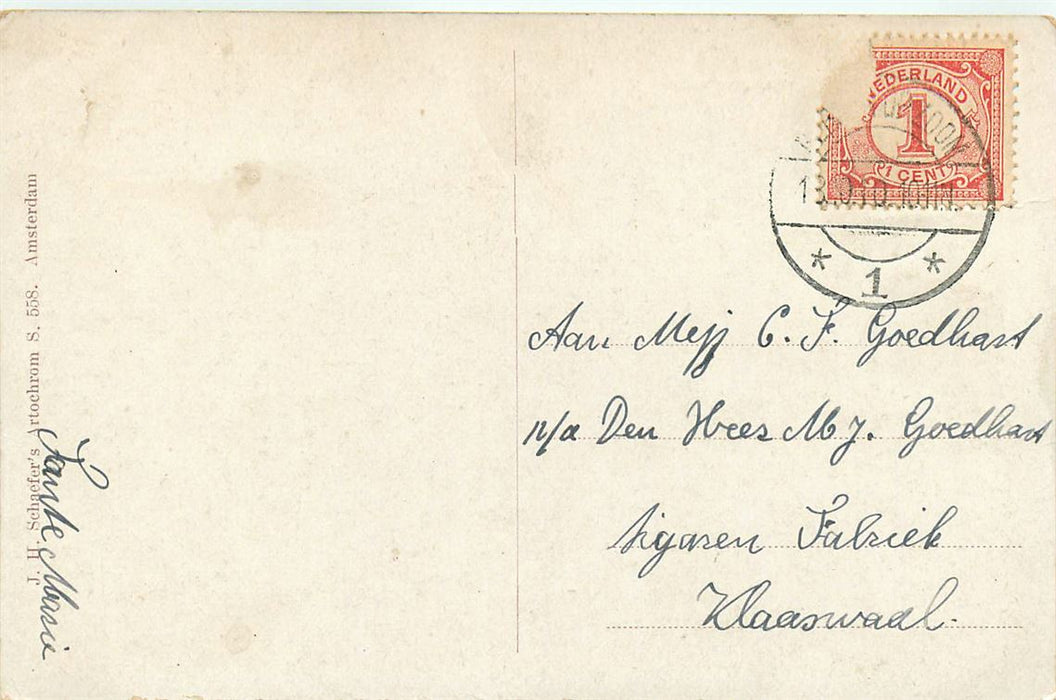 J. H. Schaefer's Artochrom S. 558. Amsterdam
Tante Marie
NEDERLAND
1
1 CENT
* 1 *
Aan Mejj C. F. Goedhart
p/a Den Heer M. J. Goedhart
Sigaren Fabriek
Klaaswaal.